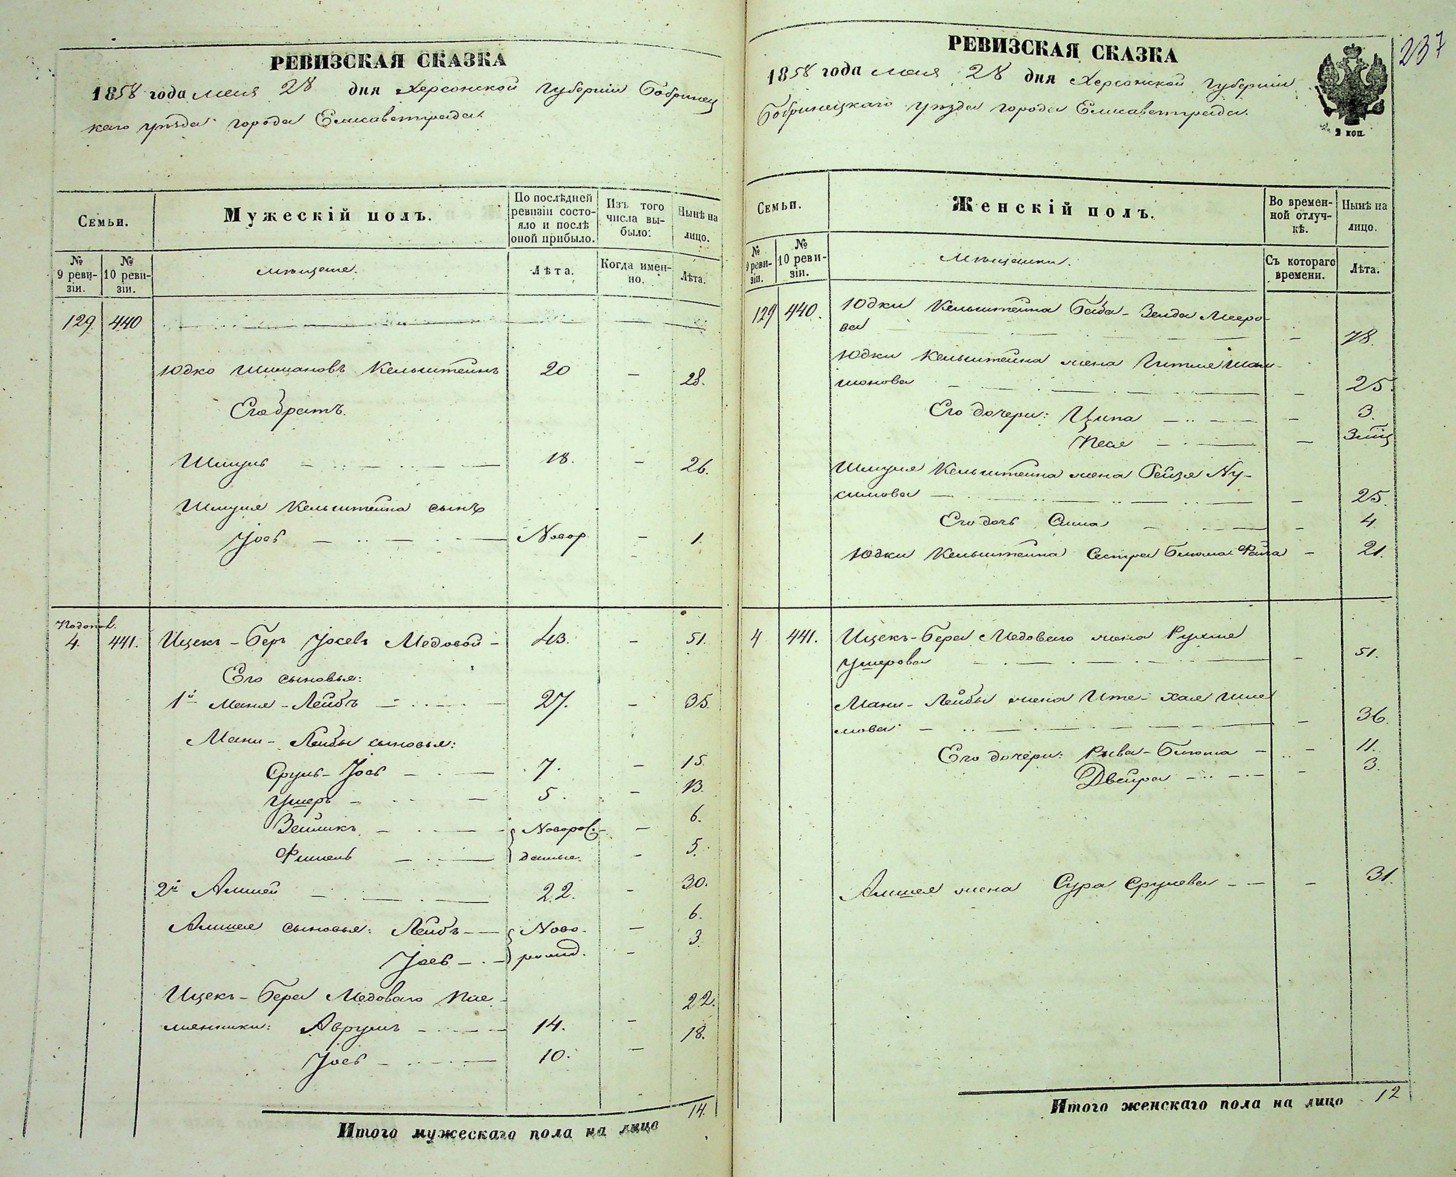 РЕВИЗСКАЯ СКАЗКА
1858 года мая 28 дня Херсонской губернии Бобринец
каго уѣзда города Елисаветграда.
Семьи.
Мужескій полъ.
По послѣдней ревизіи состояло и послѣ оной прибыло.
Изъ того числа выбыло:
Нынѣ на лицо.
№ 9 ревизіи.
№ 10 ревизіи.
мѣщане.
Лѣта.
Когда именно.
Лѣта.
129 440
Юдко Шимановъ Кельштейнъ 20 — 28.
Его братъ.
Шмуль — 18. — 26.
Шмуля Кельштейна сынъ
Іось — Новор — 1.
4. 441. Ицекъ-Беръ Іосевъ Медовой - 43. — 51.
Его сыновья:
1й Маня-Лейбъ — 27. — 35.
Мани-Лейбы сыновья:
Сруль-Іось — 7. — 15.
Ушеръ — 5. — 13.
Зейликъ — Новорож- — 6.
Фишель — данные. — 5.
2й Алшей — 22. — 30.
Алшея сыновья: Лейбъ — Ново- — 6.
Іось — рожд. — 3.
Ицекъ-Бера Медоваго пле- 22.
мянники: Аврумъ — 14. — 18.
Іось — 10. —
14.
Итого мужескаго пола на лицо
237
РЕВИЗСКАЯ СКАЗКА
1858 года мая 28 дня Херсонской губерніи
Бобринецкаго уѣзда города Елисаветграда.
2 коп.
Семьи.
Женскій полъ.
Во временной отлучкѣ.
Нынѣ на лицо.
№ 9 ревизіи.
№ 10 ревизіи.
Мѣщанки.
Съ котораго времени.
Лѣта.
129 440. Юдки Кельштейна баба-Зелда Мееро-
ва — 78.
Юдки Кельштейна жена Гитля Шли-
モнова — 25.
Его дочери: Ципа — 3.
Песя —
Шмуля Кельштейна жена Бейзя Ну-
симова — 25.
Его дочь Сима — 4
Юдки Кельштейна сестра Блюма-Фейга — 21.
4 441. Ицекъ-Бера Медоваго жена Рухля
Ушерова — 51.
Мани-Лейбы жена Ите-Хая Шле
мова — 36.
Его дочери: Рыва-Блюма — 11.
Двейра — 3.
Алшея жена Сура Срулева — 31.
Итого женскаго пола на лицо 12